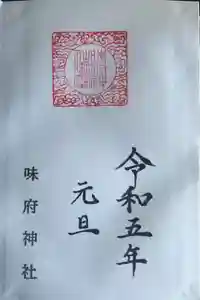 令和五年
元旦
味府神社